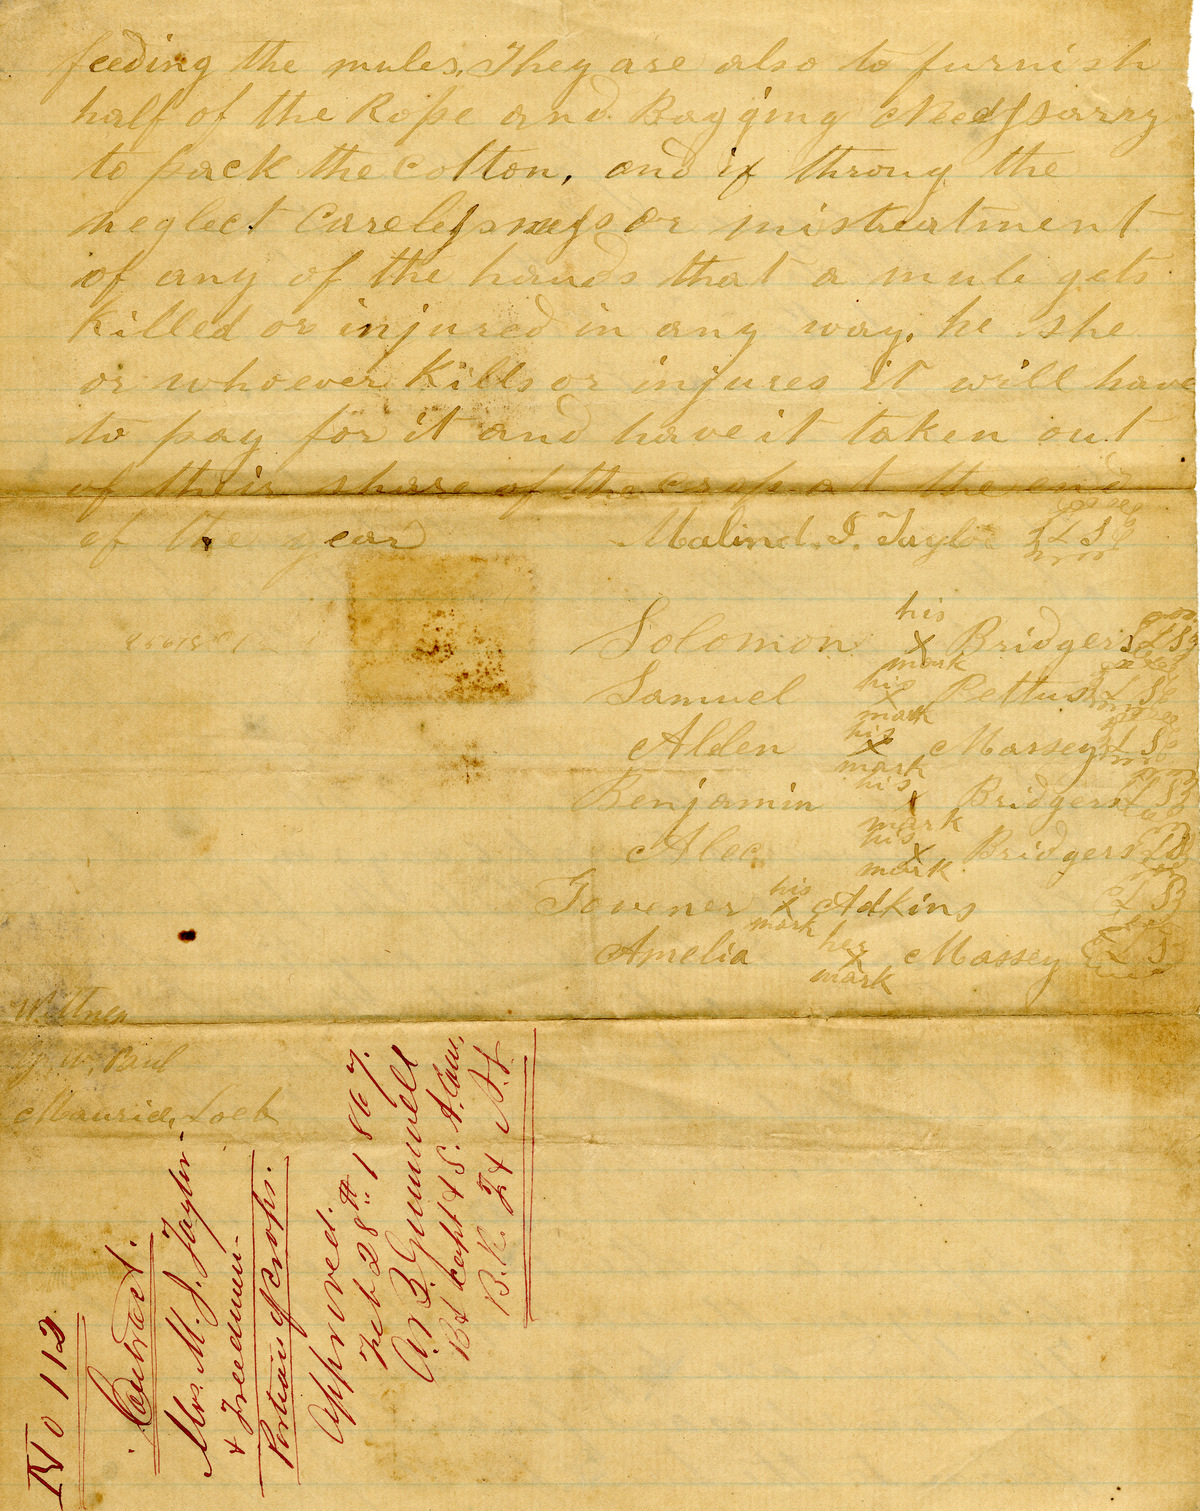 feeding the mules, They are also to furnish
half of the Rope and Bagging Necessarry
to pack the cotton, and if throug the
neglect Carelessness or mistreatment
of any of the hands that a mule gets
Killed or injured in any way, he she
or whoever Kills or injures it will have
to pay for it and have it taken out
of their share of the crop at the end
of the year
Malind. J. Taylor L S
Solomon his X mark Bridgers L S
Samuel his X mark Pettus L S
Alden his X mark Massey L S
Benjamin his X mark Bridgers L S
Alec his X mark Bridgers L S
Govener his X mark Adkins L S
Amelia her X mark Massey L S
Wittness
J. W. Paul
Maurice Loeb
No 112
Contract.
Mrs. M. J. Taylor
& Freedmen
Portion of crops.
Approved.
Feb 28th 1867.
Bt Capt & S. A. Com.